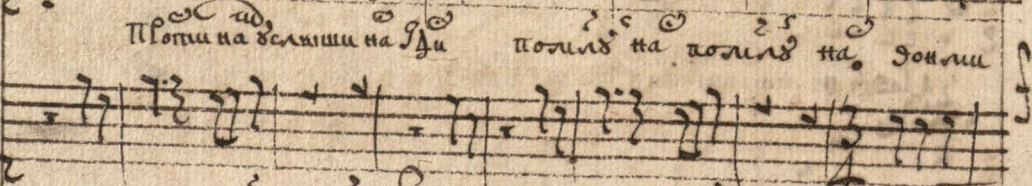 Прости наⷭ ꙋслыши наⷭ Гд҃и помилꙋй наⷭ помилꙋй наⷭ. вонми